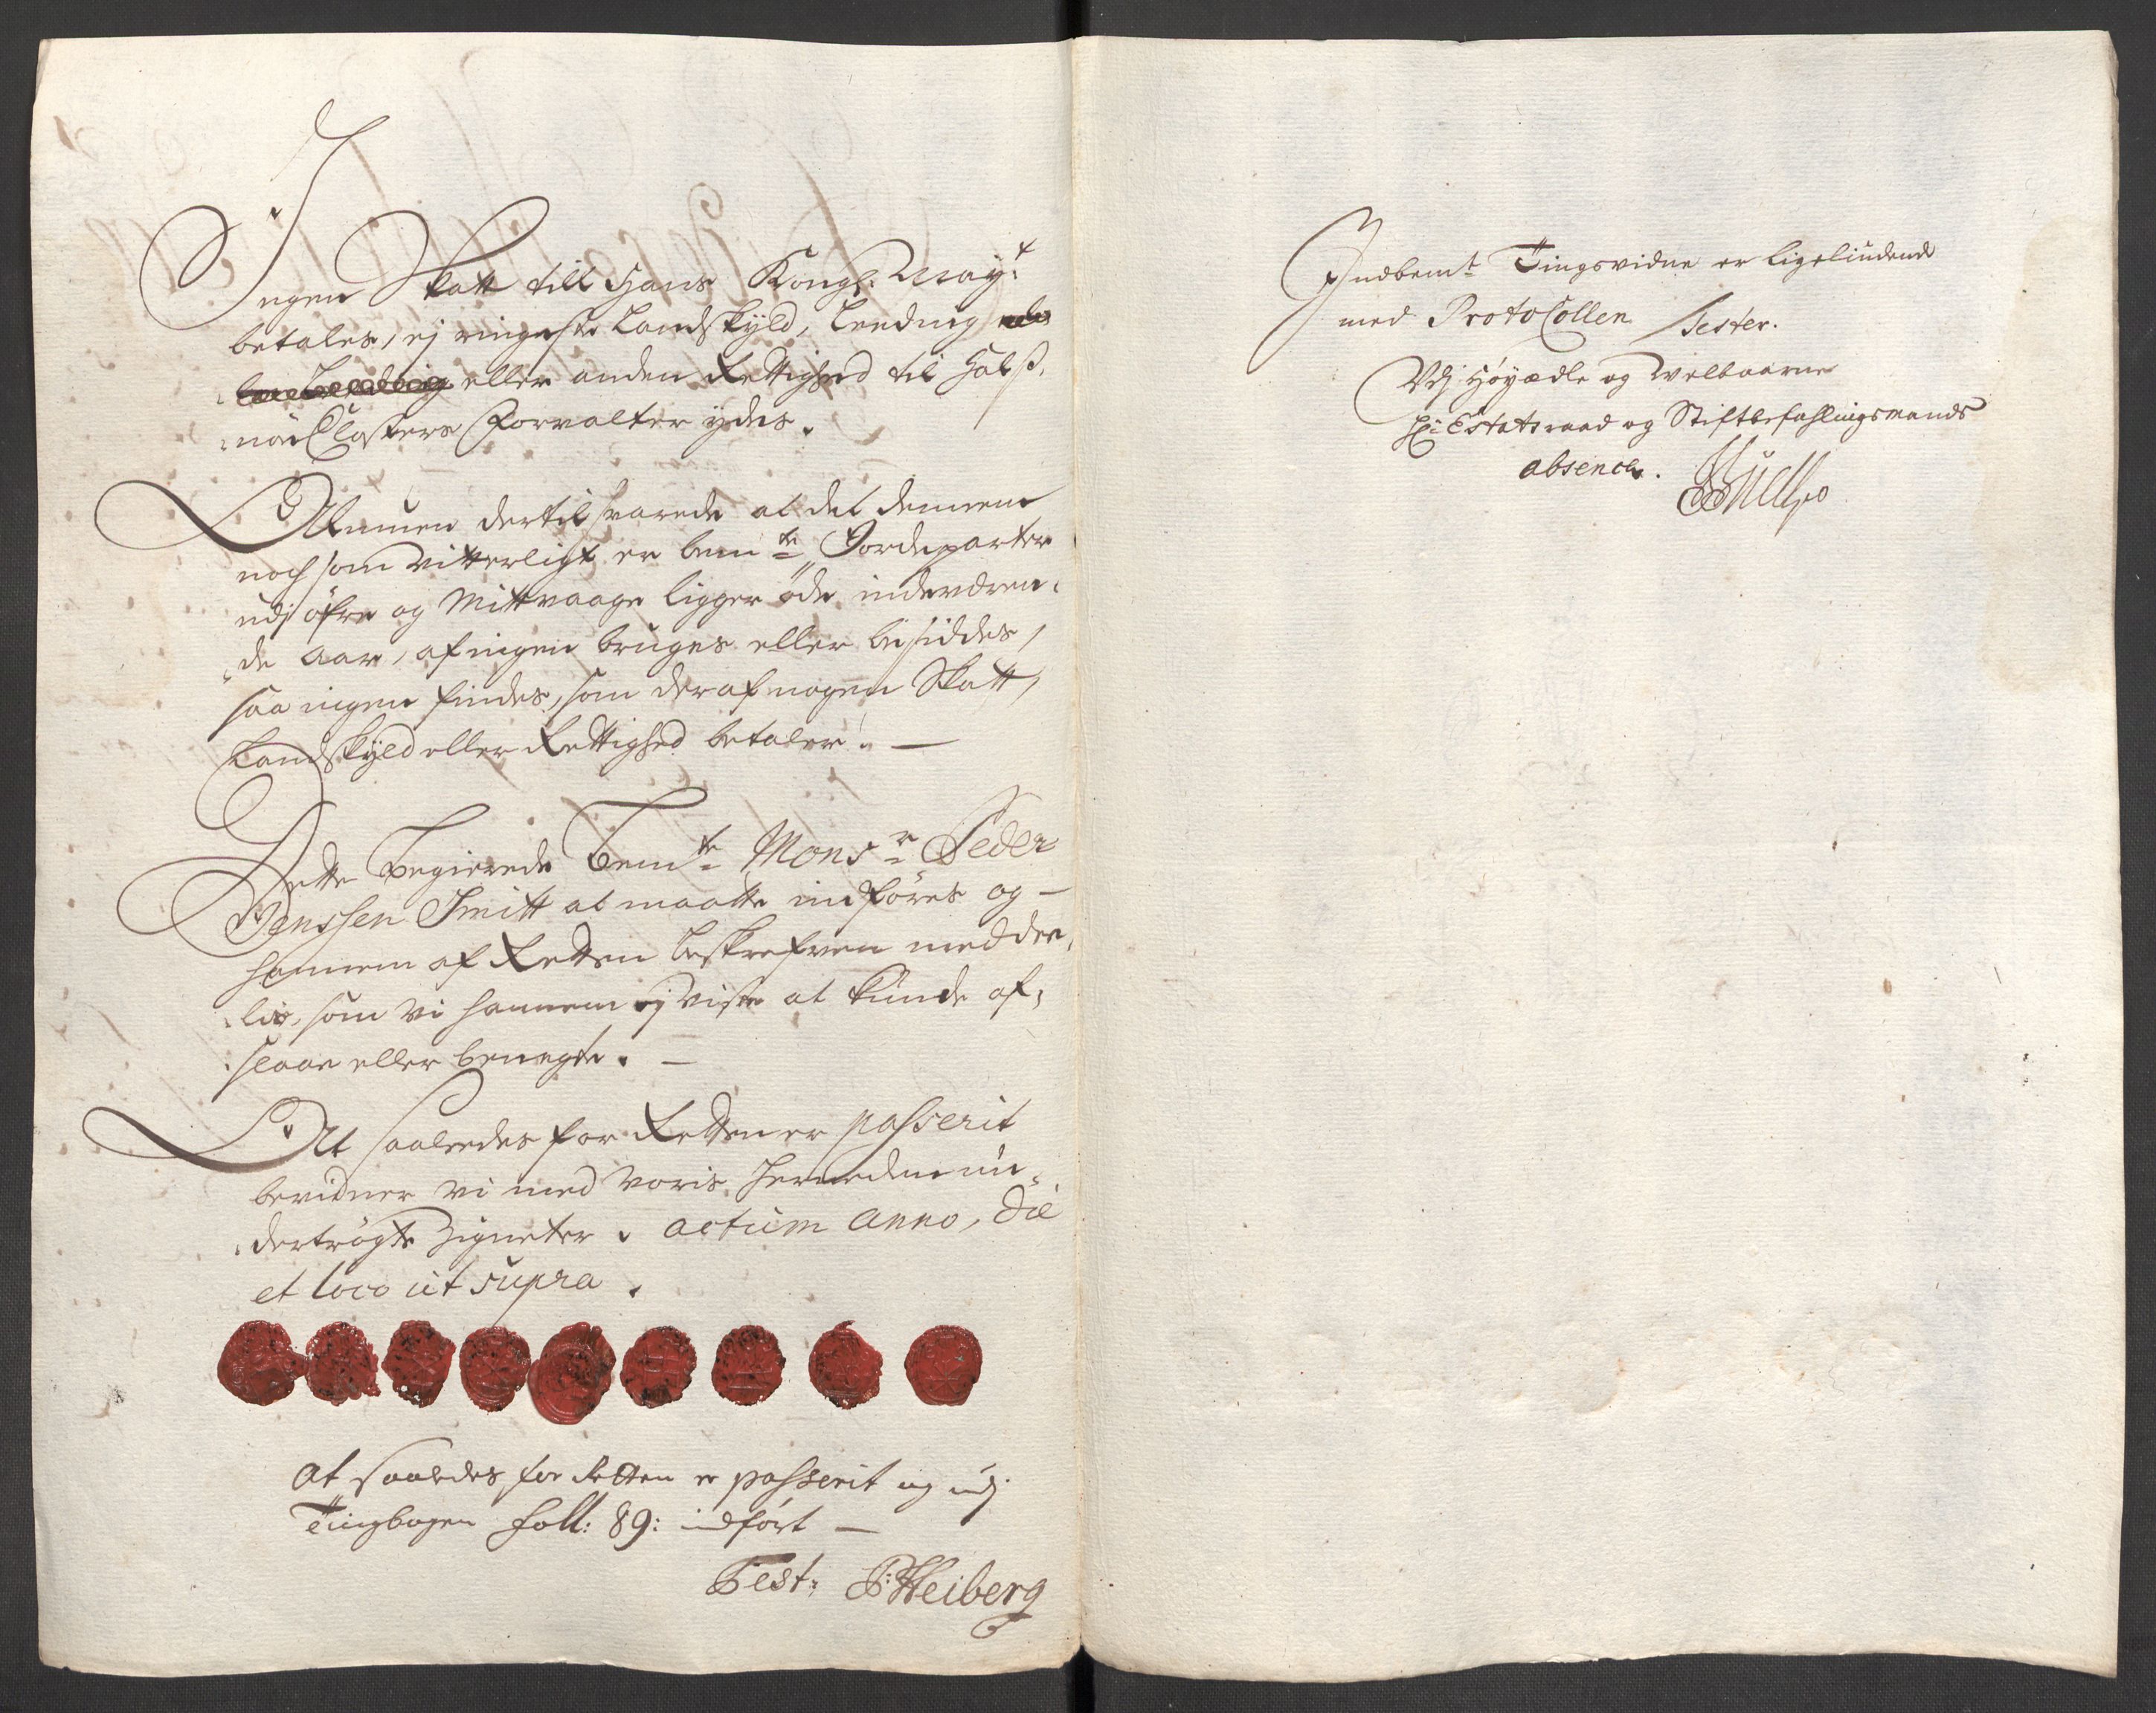 Ingen Skatt till Hans Kongl: May:t
betales, ej ringeste Landskyld, Leeding
eller anden Rettighed til Halß-
nøe Closters Forvalter ydes.
Almuen dertil svarede at det dennem
nochsom vitterligt er bem:te Jordeparter
udj öfre og Mittvaage ligger öde indeværen-
de Aar, af ingen bruges eller besiddes,
saa ingen findes, som deraf nogen Skatt,
Landskyld eller Rettighed betaler. —
Dette begierede bem:te Mons:r Peder
Jenssen Smitt at maatte indföres og
hannem af Retten beskrefven meddee-
lis, som vi hannem ej viste at kunde af-
slaae eller benegte. —
At saaledes for Retten er passerit
bevidner vi med voris hernedenun-
dertrögte Zigneter. Actum Anno, Die
et loco ut supra.
At saaledes for Retten er passerit og udj
Tingbogen foll: 89: indført —
Test: P: Heiberg
Indbem:t Tingsvidne er ligeliudende
med Protocollen Tester.
Udj Höyædle og Welbaarne
Hr: Estatsraad og Stiftbefahlingsmands
absence.